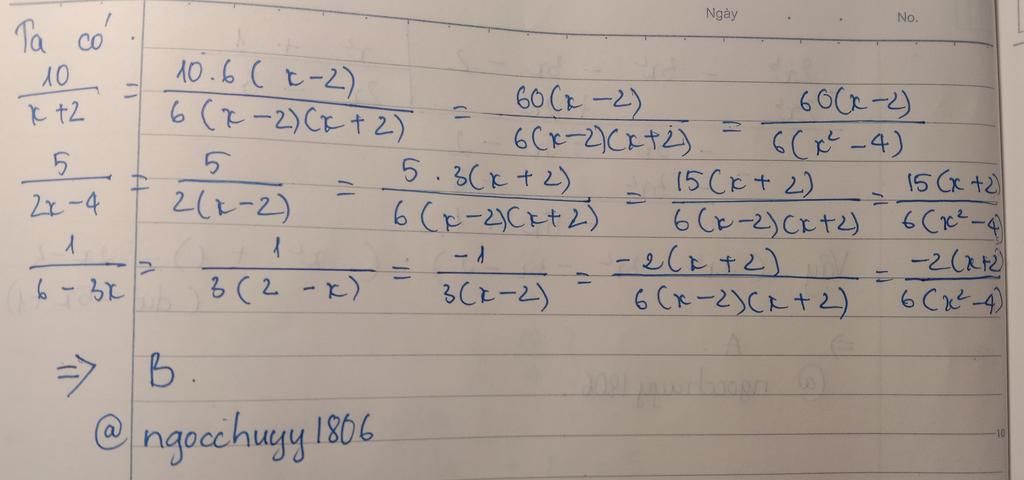 Ngày . . No.
Ta có:
10/(x+2) = 10.6(x-2)/6(x-2)(x+2) = 60(x-2)/6(x-2)(x+2) = 60(x-2)/6(x²-4)
5/(2x-4) = 5/2(x-2) = 5.3(x+2)/6(x-2)(x+2) = 15(x+2)/6(x-2)(x+2) = 15(x+2)/6(x²-4)
1/(6-3x) = 1/3(2-x) = -1/3(x-2) = -2(x+2)/6(x-2)(x+2) = -2(x+2)/6(x²-4)
=> B.
@ngocchuyy1806
10